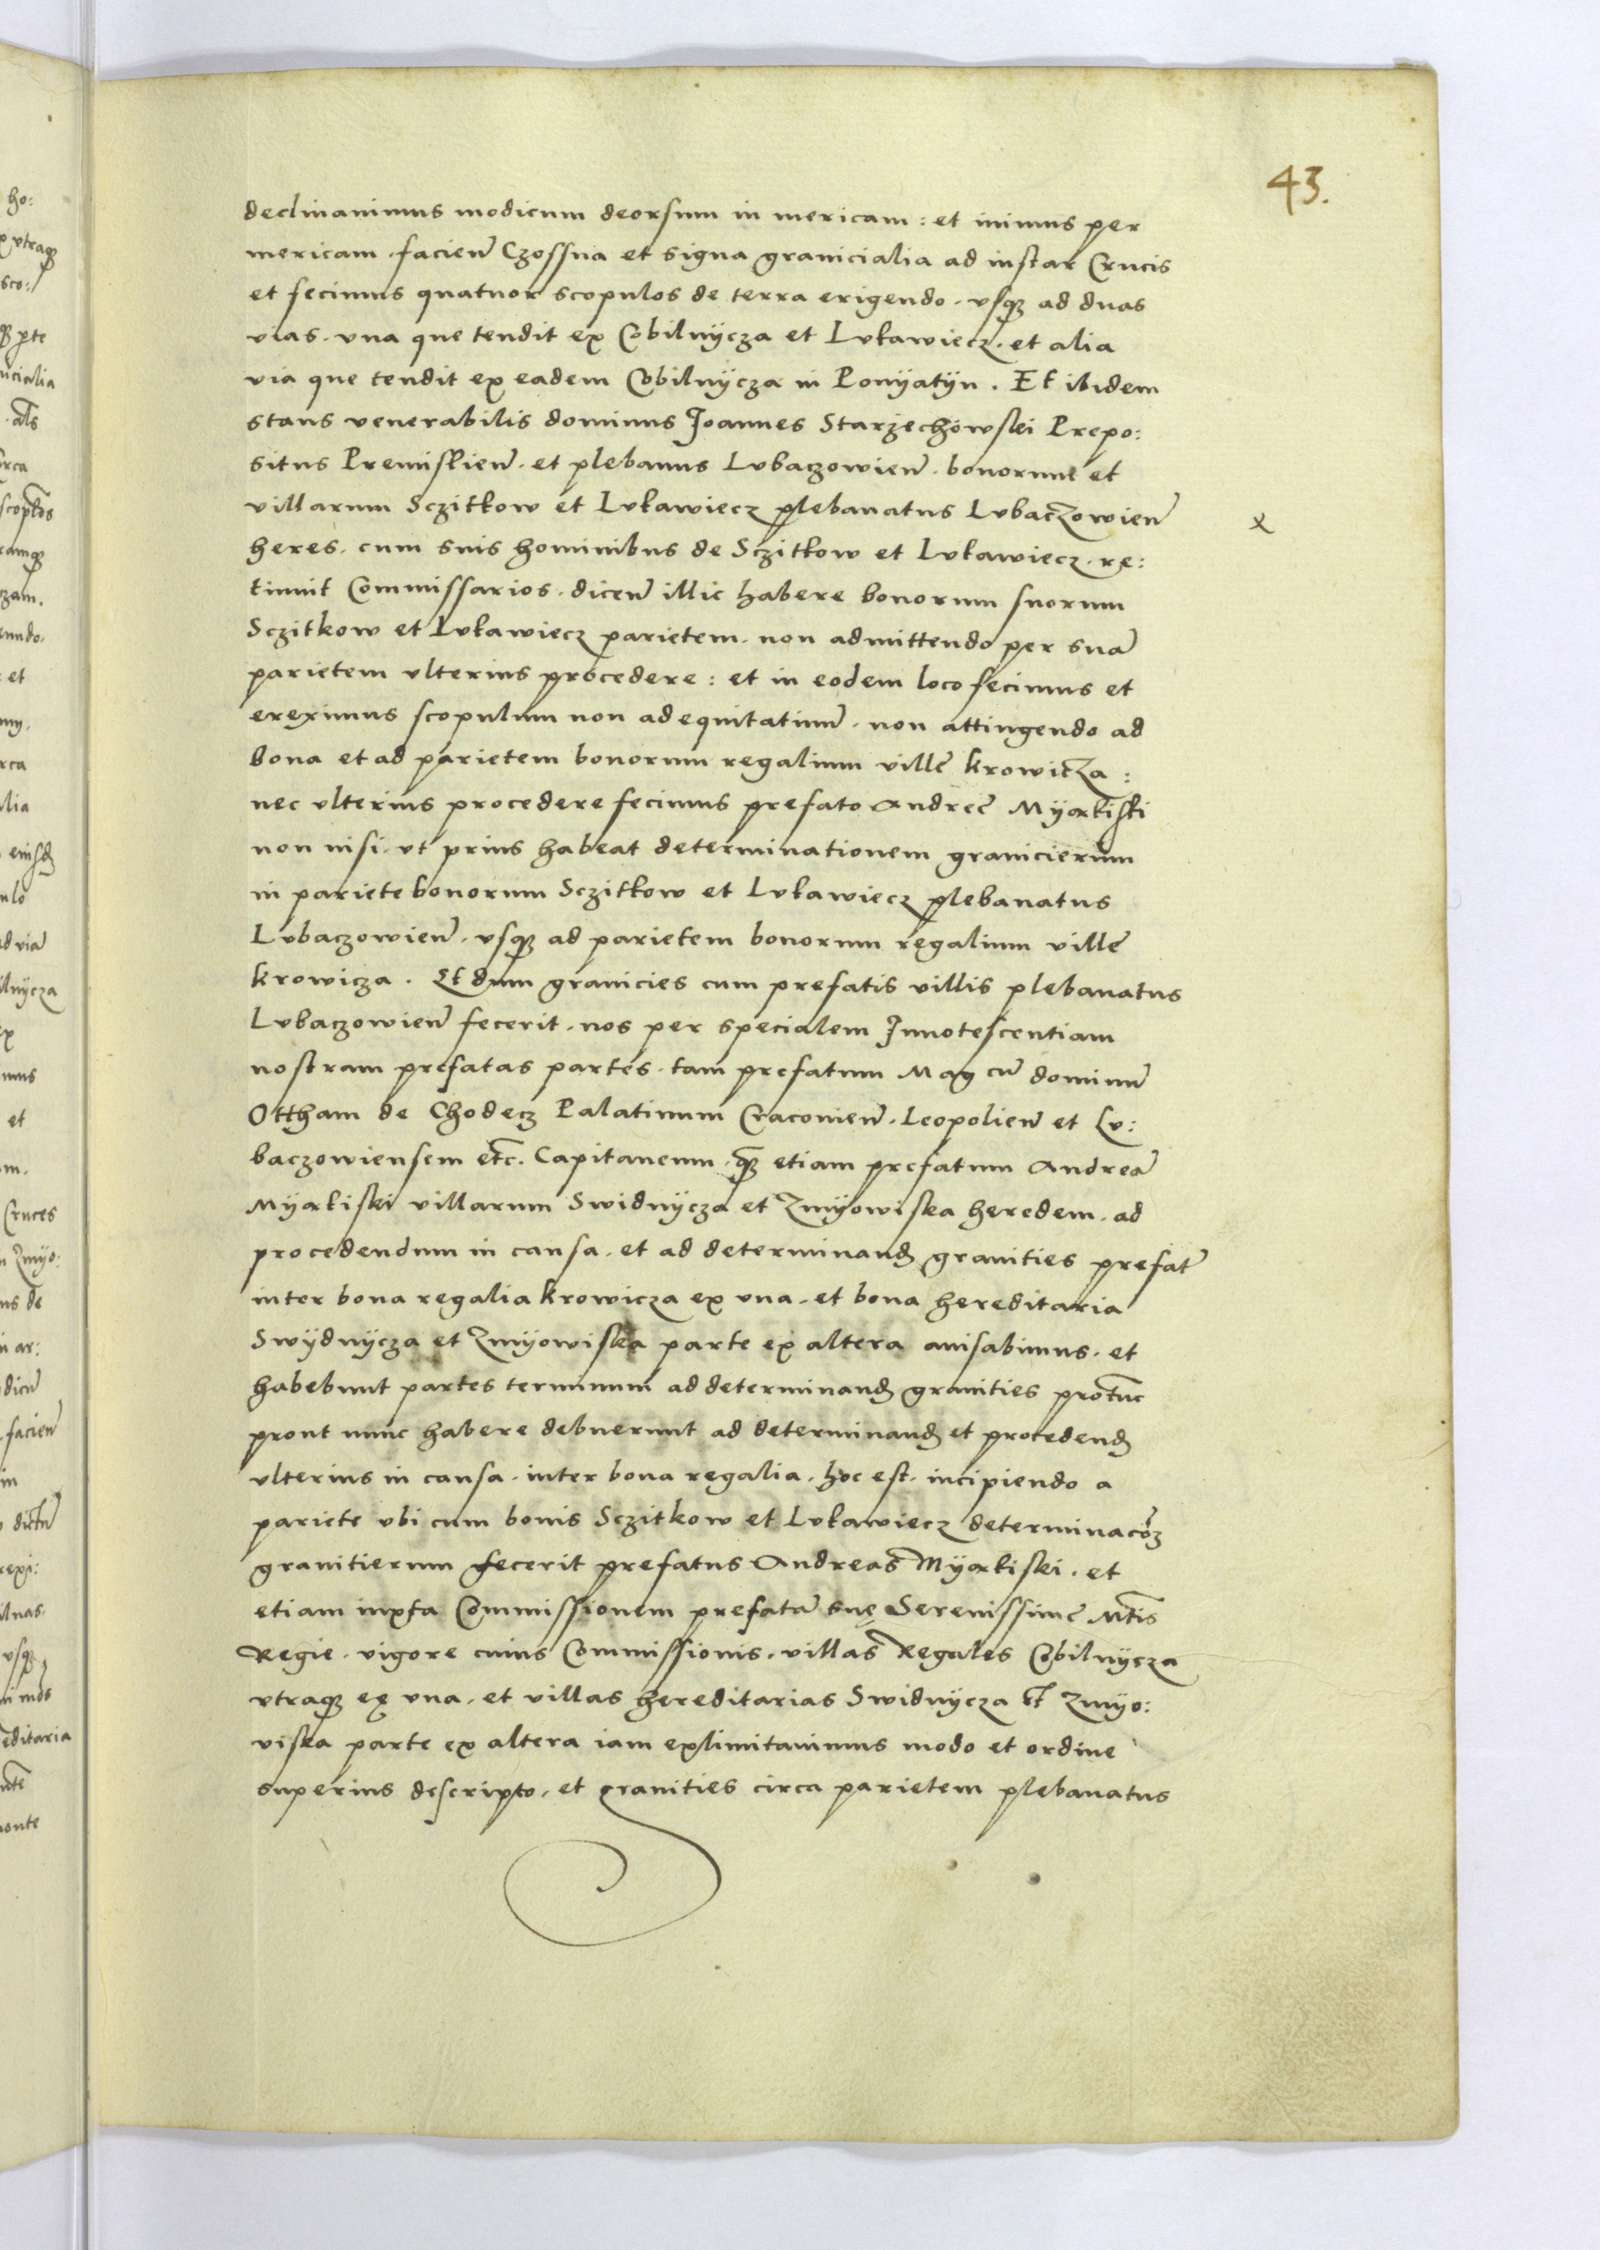 43.
declinavimus modicum deorsum in mericam : et ivimus per
mericam facien̄ Czossna et signa granicialia ad instar Crucis
et fecimus quatuor scopulos de terra erigendo . vsqʒ ad duas
vias . vna que tendit ex Cobilnycza et Lukawiecz . et alia
via que tendit ex eadem Cobilnycza in Ponyatyn . Et ibidem
stans venerabilis dominus Joannes Starzechowski Prepo:
situs Premislien̄ . et plebanus Lubaczowien̄ . bonorum et
villarum Sczitkow et Lukawiecz plebanatus Lubaczowien̄
heres . cum suis hominibus de Sczitkow et Lukawiecz . rę:
tinuit Commissarios . dicen̄ illic habere bonorum suorum
Sczitkow et Lukawiecz parietem . non admittendo per suā
parietem vlterius procedere : et in eodem loco fecimus et
ereximus scopulum non adequitatiuū . non attingendo ad
bona et ad parietem bonorum regalium ville krowicza :
nec vlterius procedere fecimus prefato Andree Myxkiski
non nisi . vt prius habeat determinationem granicierum
in pariete bonorum Sczitkow et Lukawiecz plebanatus
Lubaczowien̄ . vsqʒ ad parietem bonorum regalium ville
krowicza . Et dum granicies cum prefatis villis plebanatus
Lubaczowien̄ fecerit . nos per specialem Innotescentiam
nostram prefatas partes . tam prefatum Mag cū dominū
Ottham de Chodecz Palatinum Cracouien̄ . Leopolien̄ et Lu:
baczowiensem etc̄. Capitaneum . qʒ etiam prefatum Andreā
Myxkiski villarum Swidnycza et Zmyowiska heredem . ad
procedendum in causa . et ad determinand̄ granities prefat̄
inter bona regalia krowicza ex vna . et bona hereditaria
Swydnycza et Zmyowiska parte ex altera auisabimus . et
habebunt partes terminum ad determinand̄ granities protūc
prout nunc habere debuerunt ad determinand̄ et procedend̄
vlterius in causa . inter bona regalia . hoc est . incipiendo a
pariete vbi cum bonis Sczitkow et Lukawiecz determinacōʒ
granitierum fecerit prefatus Andreas Myxkiski . et
etiam iuxta Commissionem prefatā suę Serenissime Mtis
Regie . vigore cuius Commissionis . villas Regales Cobilnycza
vtraqʒ ex vna . et villas hereditarias Swidnycza et Zmyo:
viska parte ex altera iam exlimitauimus modo et ordine
superius descripto . et granities circa parietem plebanatus